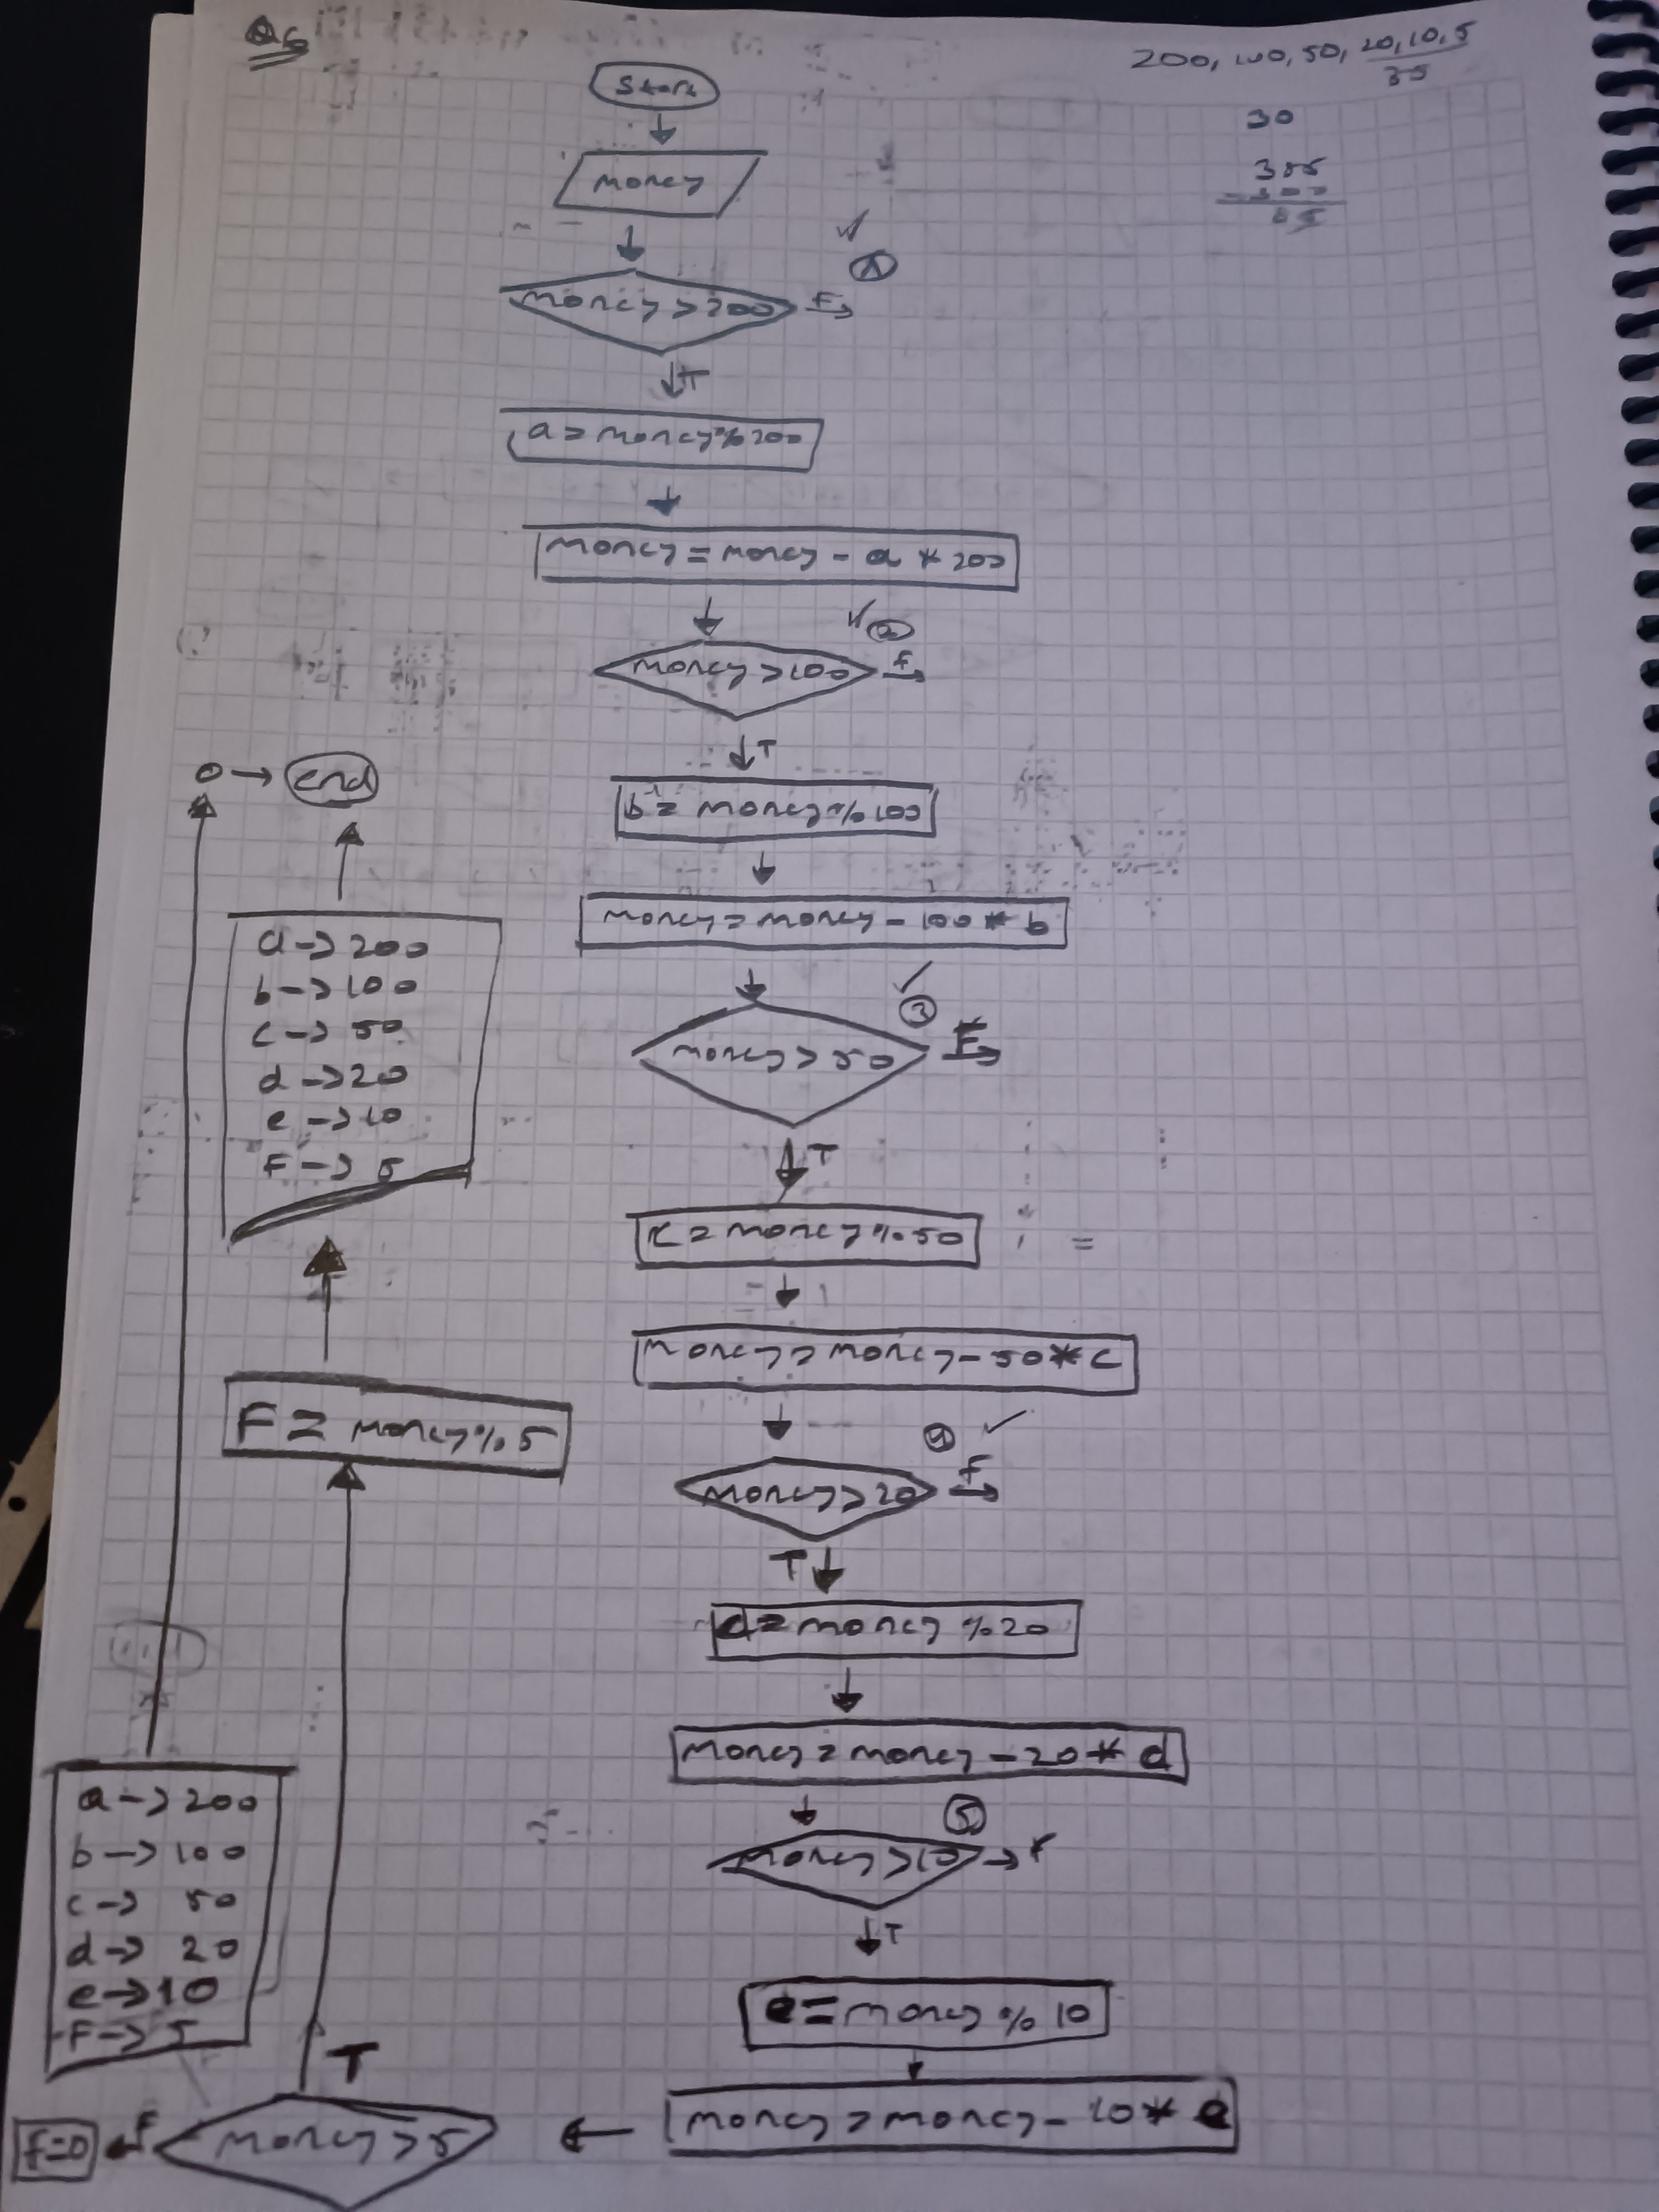 Q6
200, 100, 50, 20, 10, 5
35
30
385
85
Start
money
1
money > 200
F
T
a = money % 200
money = money - a * 200
2
money > 100
F
T
b = money % 100
money = money - 100 * b
3
money > 50
F
T
c = money % 50
money = money - 50 * c
4
money > 20
F
T
d = money % 20
money = money - 20 * d
5
money > 10
F
T
e = money % 10
money = money - 10 * e
money > 5
T
F
F = money % 5
a -> 200
b -> 100
c -> 50
d -> 20
e -> 10
F -> 5
end
f=0
a -> 200
b -> 100
c -> 50
d -> 20
e -> 10
F -> 5